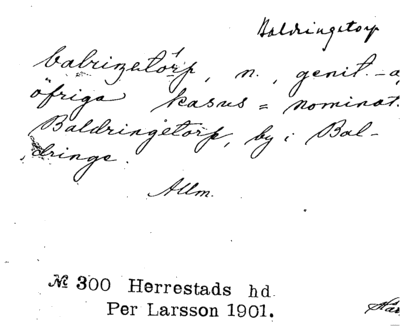 Baldringetorp
balrizetórp, n., genit. -a,
öfriga kasus = nominat.
Baldringetorp, by i Bal-
dringe.
Allm.
№ 300 Herrestads hd
Per Larsson 1901.